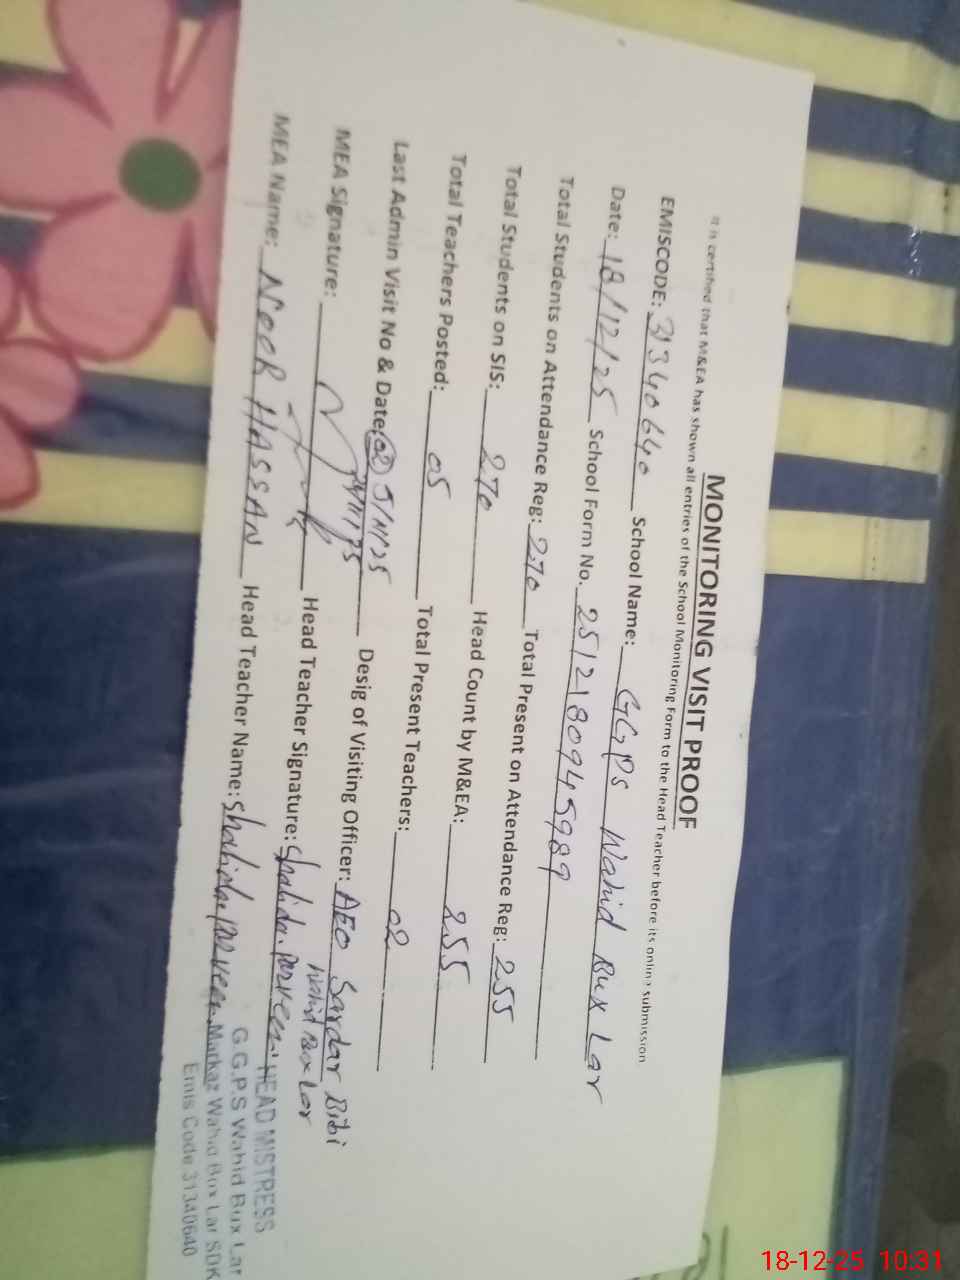 MONITORING VISIT PROOF
It is certified that M&EA has shown all entries of the School Monitoring Form to the Head Teacher before its online submission
EMISCODE: 31340640 School Name: GGPS Wahid Bux Lar
Date: 18/12/25 School Form No. 251218094 5989
Total Students on Attendance Reg: 270 Total Present on Attendance Reg: 255
Total Students on SIS: 270 Head Count by M&EA: 255
Total Teachers Posted: 05 Total Present Teachers: 02
Last Admin Visit No & Date: 02 5/11/25 Desig of Visiting Officer: AEO Sardar Bibi
Wahid Box Lar
MEA Signature: Head Teacher Signature: Shahida Parveen
MEA Name: NOOR HASSAN Head Teacher Name: Shahida Parveen
HEAD MISTRESS
G.G.P.S Wahid Bux Lar
Markaz Wahid Box Lar SDK
Emis Code 31340640
18-12-25 10:31